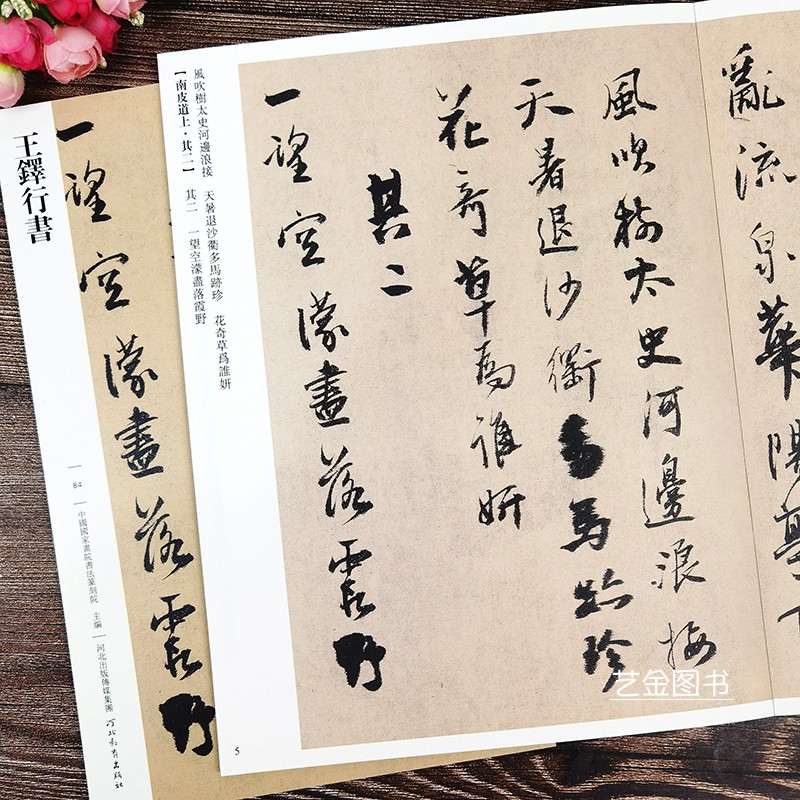 王鐸行書
84
中國國家畫院書法篆刻院 主編
河北出版傳媒集團
河北教育出版社
一望空濛盡落霞野
風吹樹太史河邊浪接 天暑退沙衢多馬跡珍 花奇草爲誰妍
【南皮道上·其二】 其二 一望空濛盡落霞野
亂流泉華陽
風吹樹太史河邊浪接
天暑退沙衢多馬跡珍
花奇草為誰妍
其二
一望空濛盡落霞野
5
艺金图书